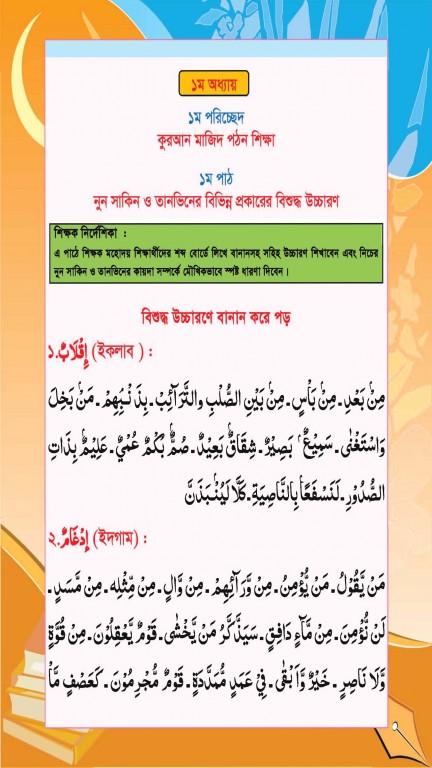 ১ম অধ্যায়
১ম পরিচ্ছেদ
কুরআন মাজিদ পঠন শিক্ষা
১ম পাঠ
নুন সাকিন ও তানভিনের বিভিন্ন প্রকারের বিশুদ্ধ উচ্চারণ
শিক্ষক নির্দেশিকা :
এ পাঠে শিক্ষক মহোদয় শিক্ষার্থীদের শব্দ বোর্ডে লিখে বানানসহ সহিহ উচ্চারণ শিখাবেন এবং নিচের
নুন সাকিন ও তানভিনের কায়দা সম্পর্কে মৌখিকভাবে স্পষ্ট ধারণা দিবেন।
বিশুদ্ধ উচ্চারণে বানান করে পড়
১. إِقْلَابٌ (ইকলাব ) :
مِنْ بَعْدِ ـ مِنْ بَأْسٍ ـ مِنْ بَيْنِ الصُّلْبِ والتَّرَآئِبْ ـ بِذَنْبِهِمْ ـ مَنْ بَخِلَ
وَاسْتَغْنٰى ـ سَمِيْعٌ ۢ بَصِيْرٌ ـ شِقَاقٌ بَعِيْدٌ ـ صُمٌّ بُكْمٌ عُمْيٌ ـ عَلِيْمٌ بِذَاتِ
الصُّدُوْرِ ـ لَنَسْفَعًا بِالنَّاصِيَةِ ـ كَلَّا لَيُنْبَذَنَّ
২. إِدْغَامٌ (ইদগাম) :
مَنْ يَّقُوْلُ ـ مَنْ يُّؤْمِنُ ـ مِنْ وَّرَآئِهِمْ ـ مِنْ وَّالٍ ـ مِنْ مِّثْلِهٖ ـ مِنْ مَّسَدٍ ـ
لَنْ نُّؤْمِنَ ـ مِنْ مَّآءٍ دَافِقٍ ـ سَيَذَّكَّرُ مَنْ يَّخْشٰى ـ قَوْمٌ يَّعْقِلُوْنَ ـ مِنْ قُوَّةٍ
وَّلَا نَاصِرٍ ـ خَيْرٌ وَّاَبْقٰى ـ فِيْ عَمَدٍ مُّمَدَّدَةٍ ـ قَوْمٌ مُّجْرِمُوْنَ ـ كَعَصْفٍ مَّأْ